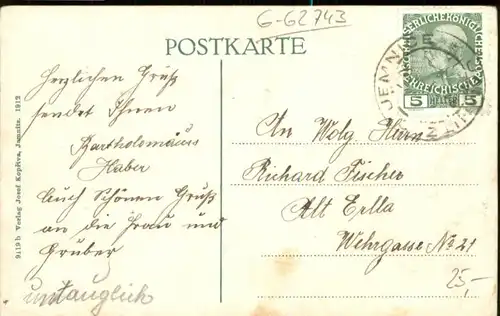 G-62743
POSTKARTE
Herzlichen Gruß
sendet Ihnen
Bartholomäus
Haber
Auch Schönen Gruß
an die Frau und
Gruber
untauglich
9119 b Verlag Josef Kopřiva, Jamnitz. 1912
KAISERLICHE KÖNIGLICHE
ÖSTERREICHISCHE POST
5 HELLER 5
JEMNI
An Wolg
Richard Fischer
Alt Erlla
Wehrgasse № 21
25,-